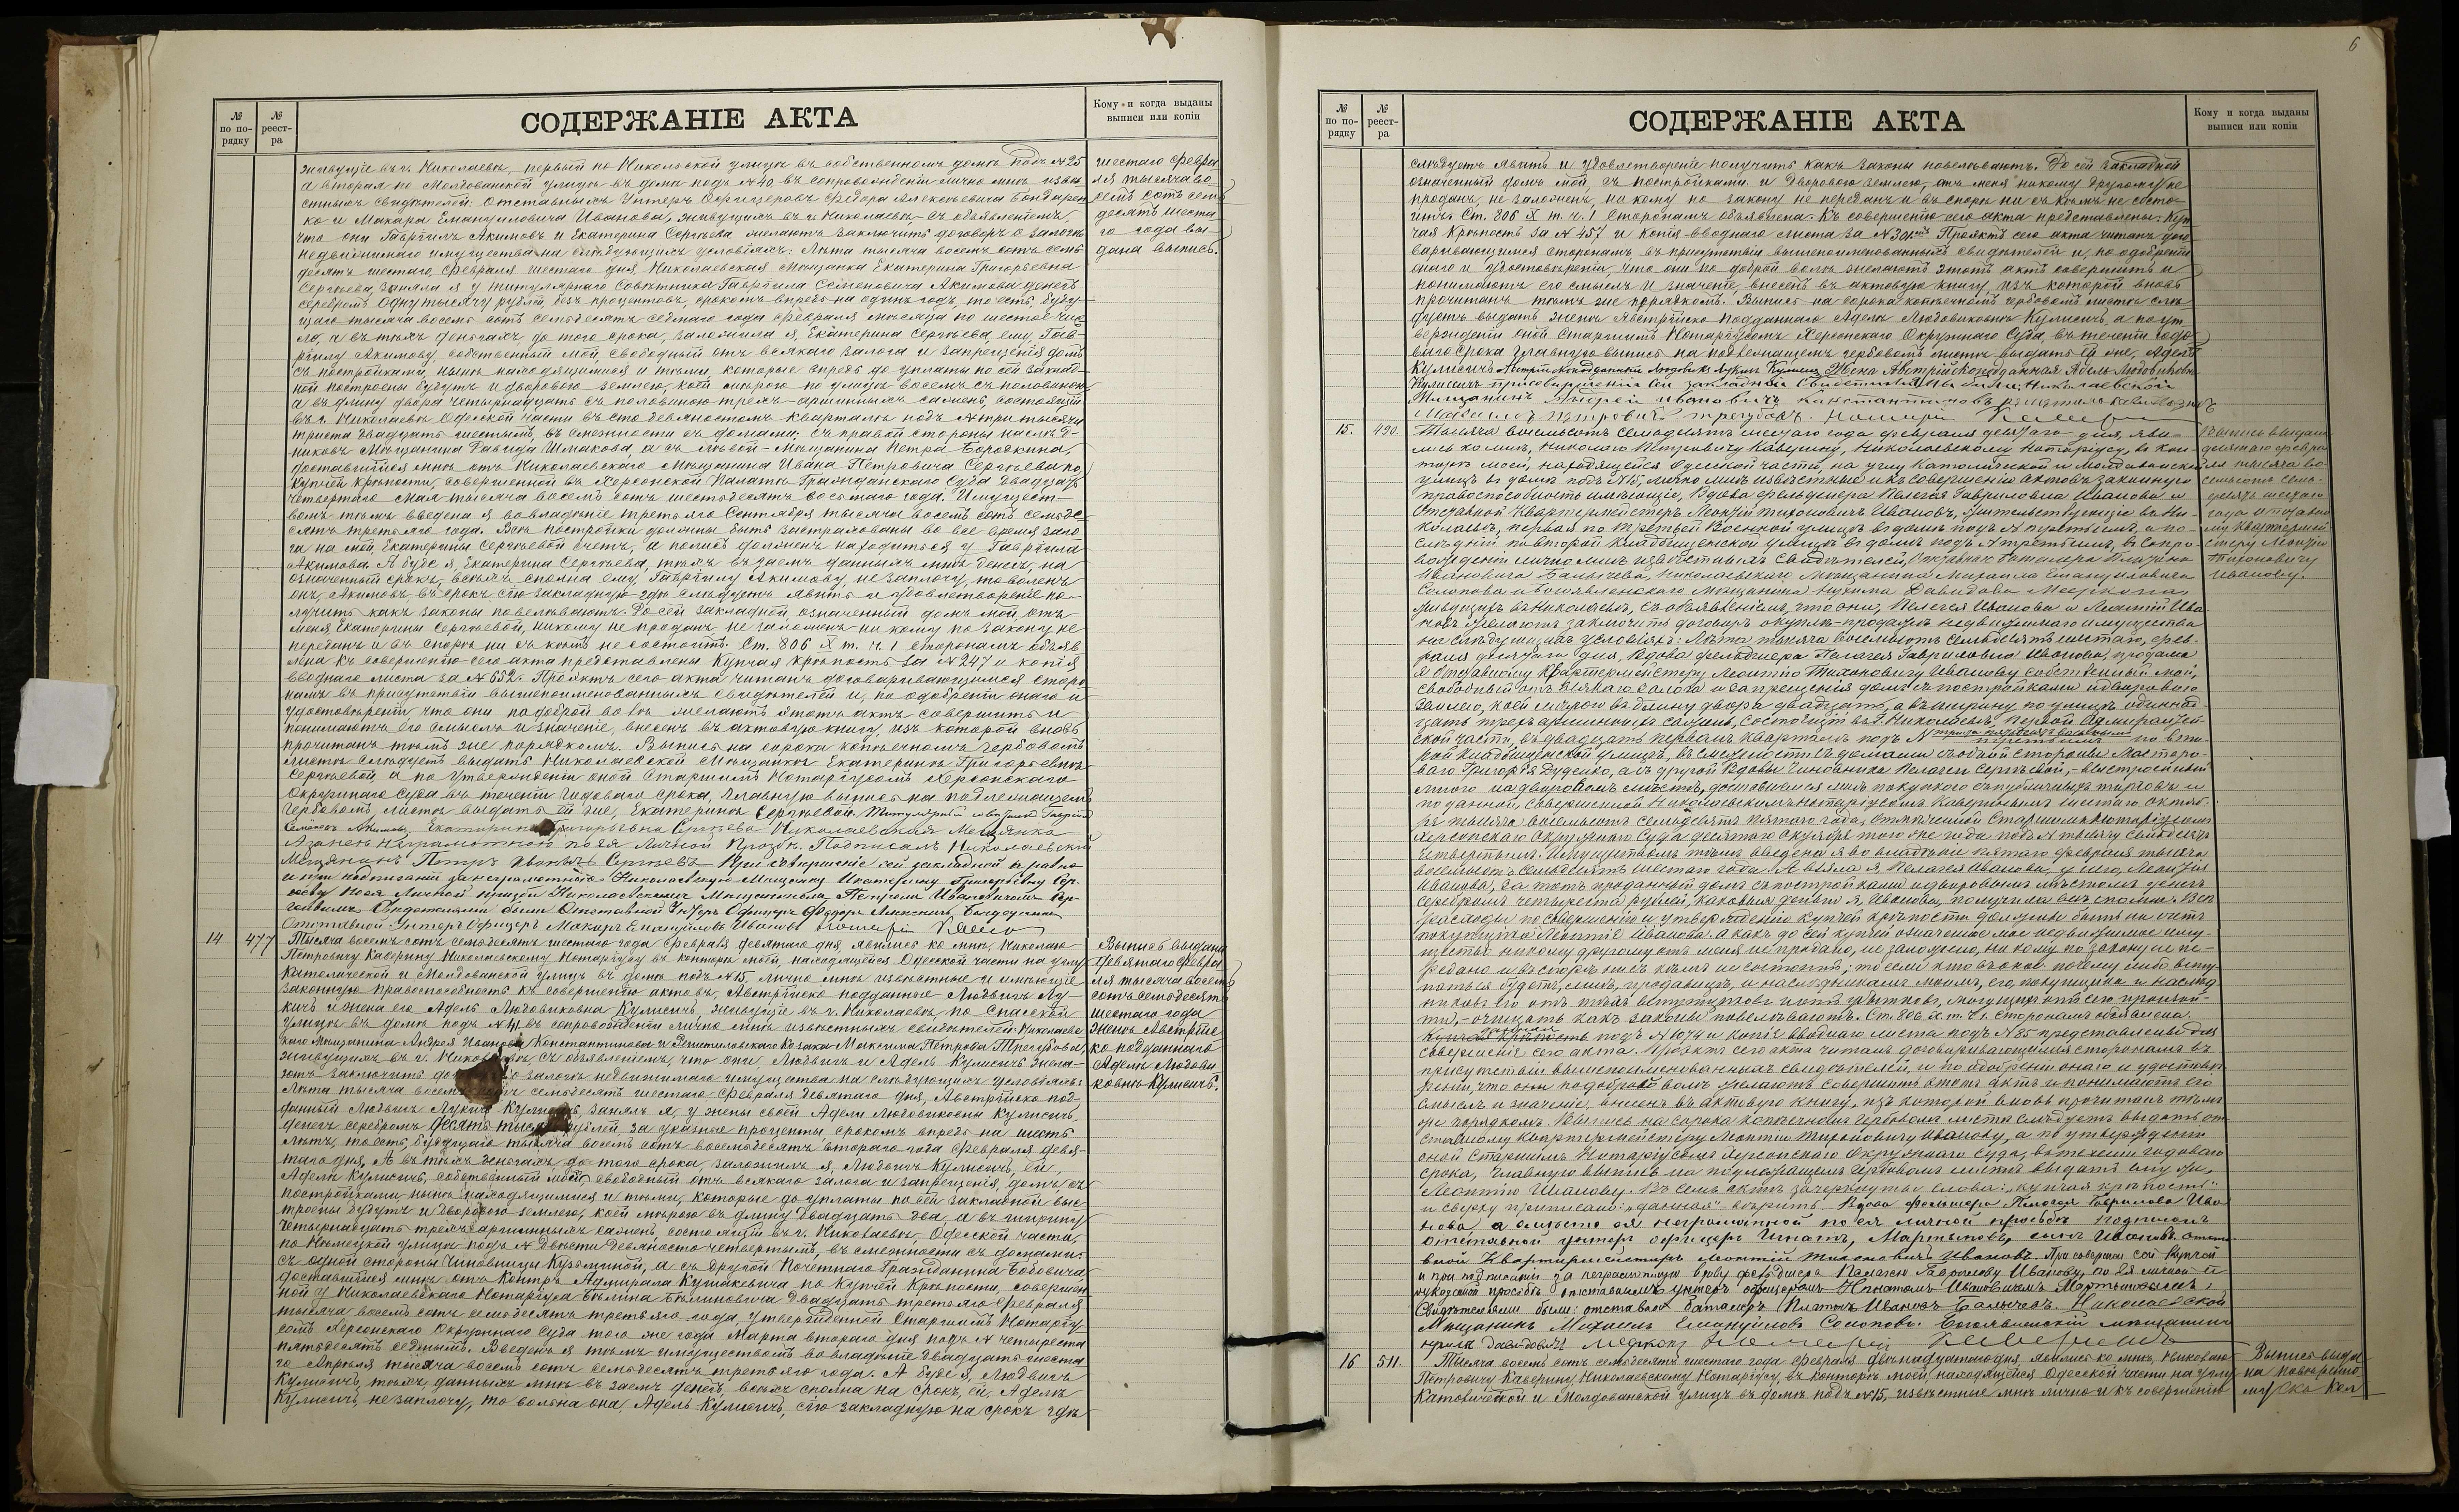 № по по-рядку
№ реест-ра
СОДЕРЖАНІЕ АКТА
Кому и когда выданы выписи или копіи
живущіе въ г. Николаевѣ, первый по Никольской улицѣ въ собственномъ домѣ подъ №25
а вторая по Молдованской улицѣ въ домѣ подъ №40 въ сопровожденіи лично мнѣ извѣ
стныхъ свидѣтелей: Отставныхъ Унтеръ Офицеровъ Федора Алексѣевича Бондарен
ко и Макара Емануиловича Иванова, живущихъ въ г. Николаевѣ съ объявленіемъ,
что они Гавріилъ Акимовъ и Екатерина Сергѣева желаютъ заключить договоръ о залогѣ
недвижимаго имущества на слѣдующихъ условіяхъ: Лѣта тысяча восемь сотъ семь
десятъ шестаго, Февраля шестаго дня, Николаевская Мѣщанка Екатерина Григорьевна
Сергѣева, заняла я у Титулярнаго Совѣтника Гавріила Семеновича Акимова денегъ
серебромъ одну тысячу рублей, безъ процентовъ, срокомъ впредь на одинъ годъ, то есть, буду-
щаго тысяча восемь сотъ семьдесятъ седьмаго года Февраля мѣсяца по шестое чис
ло, а въ тѣхъ деньгахъ до того срока, заложила я, Екатерина Сергѣева, ему, Гав-
ріилу Акимову, собственный мой, свободный отъ всякаго залога и запрещенія домъ
съ постройками, нынѣ находящимися и тѣми, которые впредь до уплаты по сей заклад-
ной построены будутъ и дворовою землею, коей мѣрою по улицѣ восемь съ половиною
а въ длину двора четырнадцать съ половиною трехъ-аршинныхъ саженъ, состоящій
въ г. Николаевѣ Одесской части въ сто девяностомъ кварталѣ подъ № три тысячи
триста двадцать шестымъ, въ смежности съ домами: съ правой стороны наслѣд-
никовъ Мѣщанина Давида Шмакова, а съ лѣвой - Мѣщанина Петра Бородкина,
доставшійся мнѣ отъ Николаевскаго Мѣщанина Ивана Петровича Сергѣева по
Купчей крѣпости, совершенной въ Херсонской Палатѣ Гражданскаго Суда двадцать
четвертаго Мая тысяча восемь сотъ шестьдесятъ восьмаго года. Имущест-
вомъ тѣмъ введена я во владѣніе третьяго Сентября тысяча восемь сотъ семьде-
сятъ третьяго года. Всѣ постройки должны быть застрахованы во все время зало
га на мой, Екатерины Сергѣевой счетъ, а полисъ долженъ находиться у Гавріила
Акимова. А буде я, Екатерина Сергѣева, тѣхъ взаемъ данныхъ мнѣ денегъ, на
означенный срокъ, всѣхъ сполна ему, Гавріилу Акимову, не заплачу, то воленъ
онъ, Акимовъ, въ срокъ сію закладную гдѣ слѣдуетъ явить и удовлетвореніе по-
лучить какъ законы повелѣваютъ. До сей закладной, означенный домъ мой, отъ
меня, Екатерины Сергѣевой, никому не проданъ, не заложенъ ни кому по закону не
переданъ и въ спорѣ ни съ кѣмъ не состоитъ. Ст. 806 X т. ч. 1 сторонамъ объяв
лена. Къ совершенію сего акта представлены Купчая крѣпость за №247 и копія
вводнаго листа за №652. Проэктъ сего акта читанъ договаривающимся сторо
намъ въ присутствіи вышепоименованныхъ свидѣтелей и, по одобреніи онаго и
удостовѣреніи что они по доброй волѣ желаютъ этотъ актъ совершить и
понимаютъ его смыслъ и значеніе, внесенъ въ актовую книгу, изъ которой вновь
прочитанъ тѣмъ же порядкомъ. Выпись на сорока копѣечномъ гербовомъ
листѣ слѣдуетъ выдать Николаевской Мѣщанкѣ Екатеринѣ Григорьевнѣ
Сергѣевой, а по утвержденіи оной Старшимъ Нотаріусомъ Херсонскаго
Окружнаго Суда въ теченіи годоваго срока, главную выпись на подлежащемъ
гербовомъ листѣ выдать ей же, Екатеринѣ Сергѣевой. Титулярный совѣтникъ Гавріилъ
Семеновъ Акимовъ. Екатерина Григорьевна Сергѣева Николаевская Мещанка
Азанеѣ неграмотною поея личной прозбѣ. Подписалъ Николаевскій
Мещанинъ Петръ Ивановъ Сергѣевъ При совершеніе сей закладной
и при подписаніи за неграмотною Николаевскую Мещанку Екатерину Григорьеву Сер-
гѣеву поея личной прозбѣ Николаевскимъ Мещаниномъ Петромъ Ивановичемъ Сер-
гѣевымъ Свидетелями были Отставной Унтеръ Офицеръ Федоръ Алексѣевъ Бондаренко
Отставной Унтеръ Офицеръ Макаръ Емануиловъ Ивановъ Нотаріусъ
шестаго Февра
ля тысяча во-
семь сотъ семь
десятъ шеста
го года вы-
дана выпись.
14 477
Тысяча восемь сотъ семьдесятъ шестаго года Февраля девятаго дня, явились ко мнѣ, Николаю
Петровичу Каверину Николаевскому Нотаріусу въ контору мою, находящейся Одесской части на углу
Католической и Молдованской улицъ въ домѣ подъ №15 лично мнѣ извѣстные и имѣющіе
законную правоспособность къ совершенію актовъ, Австрійско подданные Людвигъ Лу
кичъ и жена его Адель Людовиковна Кулисичъ, живущіе въ г. Николаевѣ, по Спасской
улицѣ въ домѣ подъ №41 въ сопровожденіи лично мнѣ извѣстныхъ свидѣтелей: Николаевс
каго Мѣщанина Андрея Иванова Константинова и Решетиловскаго Козака Максима Петрова Трегубова,
живущихъ въ г. Николаевѣ съ объявленіемъ, что они, Людвигъ и Адель Кулисичъ жела-
ютъ заключить до о залогѣ недвижимаго имущества на слѣдующихъ условіяхъ:
Лѣта тысяча восемь сотъ семьдесятъ шестаго Февраля девятаго дня, Австрійско под-
данный Людвигъ Лукичъ Кулисичъ, занялъ я, у жены своей Адели Людовиковны Кулисичъ,
денегъ серебромъ десять тысячъ рублей за указные проценты, срокомъ впредь на шесть
лѣтъ, то есть, будущаго тысяча восемь сотъ восемьдесятъ втораго года Февраля девя-
таго дня, А въ тѣхъ деньгахъ до того срока, заложилъ я, Людвигъ Кулисичъ, ей,
Адели Кулисичъ, собственный мой, свободный отъ всякаго залога и запрещенія, домъ съ
постройками, нынѣ находящимися и тѣми, которые до уплаты по сей закладной выс
троены будутъ и дворовою землею, коей мѣрою въ длину двадцать два, а въ ширину
четырнадцать трехъ аршинныхъ саженъ, состоящій въ г. Николаевѣ, Одесской части,
по Нѣмецкой улицѣ подъ № двѣсти девяносто четвертымъ, въ смежности съ домами:
съ одной стороны Чиновницы Кузьминой, а съ другой Почетнаго Гражданина Бобовича
доставшійся мнѣ отъ Контръ Адмирала Кушакевича по Купчей Крѣпости, совершен
ной у Николаевскаго Нотаріуса Бѣлина Бѣлиновича двадцать третьяго Февраля
тысяча восемь сотъ семьдесятъ третьяго года, утвержденной Старшимъ Нотаріу
сомъ Херсонскаго Окружнаго Суда того же года Марта втораго дня подъ № четыреста
пятьдесятъ седьмымъ. Введенъ я тѣмъ имуществомъ во владѣніе двадцать шеста
го Апрѣля тысяча восемь сотъ семьдесятъ третьяго года. А буде я, Людвигъ
Кулисичъ, тѣхъ, данныхъ мнѣ въ заемъ денегъ, всѣхъ сполна на срокъ, ей, Аделѣ
Кулисичъ, не заплачу, то вольна она, Адель Кулисичъ, сію закладную на срокъ гдѣ
Выпись выдана
девятаго Февра
ля тысяча восемь
сотъ семьдесятъ
шестаго года
женѣ Австрійс
ко подданнаго
Аделѣ Людови
ковнѣ Кулисичъ.
6
№ по по-рядку
№ реест-ра
СОДЕРЖАНІЕ АКТА
Кому и когда выданы выписи или копіи
слѣдуетъ явить и удовлетвореніе получить какъ законы повелѣваютъ. До сей закладной
означенный домъ мой, съ постройками и дворовою землею, отъ меня никому другому не
проданъ, не заложенъ, ни кому по закону не переданъ и въ спорѣ ни съ кѣмъ не состо-
итъ. Ст. 806 X т. ч. 1 сторонамъ объявлена. Къ совершенію сего акта представлены: Куп
чая Крѣпость за №457 и копія вводнаго листа за №301. Проэктъ сего акта читанъ дого
варивающимся сторонамъ, въ присутствіи вышепоименованныхъ свидѣтелей и, по одобреніи
онаго и удостовѣреніи, что они по доброй волѣ желаютъ этотъ актъ совершить и
понимаютъ его смыслъ и значеніе, внесенъ въ актовую книгу, изъ которой вновь
прочитанъ тѣмъ же порядкомъ. Выпись на сорока копѣечномъ гербовомъ листѣ слѣ
дуетъ выдать женѣ Австрійско подданнаго Аделѣ Людовиковнѣ Кулисичъ, а по ут
вержденіи оной Старшимъ Нотаріусомъ Херсонскаго Окружнаго Суда, въ теченіи годо
ваго срока главную выпись на подлежащемъ гербовомъ листѣ выдать ей же, Аделѣ
Кулисичъ. Австрійскоподданный Людовикъ Лукичъ Кулисичъ Жена Австрійскоподданная Адель Людовиковна
Кулисичъ присовершеніи сей закладной Свидетелями были: Николаевской
Мещанинъ Андрей ивановичъ константиновъ решетиловский
Максимъ петровичъ трегубовъ. Нотаріусъ
15. 490.
Тысяча восемьсотъ семьдесятъ шестаго года февраля девятаго дня, яви-
лись ко мнѣ, Николаю Петровичу Каверину, Николаевскому Нотаріусу, въ кон-
тору мою, находящейся Одесской части, на углу Католической и Молдованской
улицъ въ домѣ подъ №15, лично мнѣ извѣстные и къ совершенію актовъ законную
правоспособность имѣющіе, Вдова фельдшера Пелагея Гавриловна Иванова и
Отставной Квартермейстеръ Леонтій Тихоновичъ Ивановъ, жительствующіе въ Ни-
колаевѣ, первая по третьей Военной улицѣ въ домѣ подъ № третьимъ, а по-
слѣдній по второй Кладбищенской улицѣ въ домѣ подъ № третьимъ, въ сопро-
вожденіи лично мнѣ извѣстныхъ свидѣтелей, Отставнаго баталера Платона
Ивановича Балычева, Николаевскаго Мѣщанина Михаила Емануиловича
Солопова и Богоявленскаго Мѣщанина Нухима Давидова Меджопа,
живущихъ въ Николаевѣ, съ объявленіемъ, что они, Пелагея Иванова и Леонтій Ива
новъ желаютъ заключить договоръ о куплѣ-продажѣ недвижимаго имущества
на слѣдующихъ условіяхъ: Лѣта тысяча восемьсотъ семьдесятъ шестаго, фев-
раля девятаго дня, Вдова фельдшера Пелагея Гавриловна Иванова, продала
я отставному Квартермейстеру Леонтію Тихоновичу Иванову собственный мой,
свободный отъ всякаго залога и запрещенія домъ съ постройками и дворовою
землею, коей мѣрою въ длину двора двадцать, а въ ширину по улицѣ одиннад-
цать трехъ аршинныхъ саженъ, состоящій въ г. Николаевѣ, первой Адмиралтей-
ской части, въ двадцать первомъ кварталѣ подъ № третьимъ по вто-
рой Кладбищенской улицѣ, въ смежности съ домами съ одной стороны Мастеро-
ваго Григорія Дуденко, а съ другой Вдовы Чиновника Пелагеи Сергѣевой, - выстроенный
мною на дворовомъ мѣстѣ, доставшемся мнѣ покупкою съ публичныхъ торговъ и
по данной, совершенной Николаевскимъ Нотаріусомъ Кавериномъ шестаго октяб-
ря тысяча восемьсотъ семьдесятъ пятаго года, отмѣченной Старшимъ Нотаріусомъ
Херсонскаго Окружнаго Суда десятаго Октября того же года подъ № тысячу семьдесятъ
четвертымъ. Имуществомъ тѣмъ введена я во владѣніе пятаго февраля тысяча
восемьсотъ семьдесятъ шестаго года. А взяла я, Пелагея Иванова, у него, Леонтія
Иванова, за тотъ проданный домъ съ постройками и дворовымъ мѣстомъ денегъ
серебромъ четыреста рублей, каковыя деньги я, Иванова, получила всѣ сполна. Всѣ
расходы по совершенію и утвержденію купчей крѣпости должны быть на счетъ
покупщика Леонтія Иванова. А какъ до сей купчей означенное мое недвижимое иму-
щество никому другому отъ меня не продано, не заложено, ни кому по закону не пе-
редано и въ спорѣ ни съ кѣмъ не состоитъ; то если кто въ оное почему либо всту-
паться будетъ, мнѣ, продавицѣ, и наслѣдникамъ моимъ, его, покупщика и наслѣд
никовъ его отъ тѣхъ вступщиковъ и отъ убытковъ, могущихъ отъ сего произой-
ти, - очищать какъ законы повелѣваютъ. Ст. 806, X т. ч. 1. Сторонамъ объявлена.
данная
Купчая крѣпость подъ №1074 и копія вводнаго листа подъ №85 представлены для
совершенія сего акта. Проэктъ сего акта читанъ договаривающимся сторонамъ въ
присутствіи вышепоименованныхъ свидѣтелей, и по одобреніи онаго и удостовѣ-
реніи, что они по доброй волѣ желаютъ совершить этотъ актъ и понимаютъ его
смыслъ и значеніе, внесенъ въ актовую книгу, изъ которой вновь прочитанъ тѣмъ
же порядкомъ. Выпись на сорока копѣечномъ гербовомъ листѣ слѣдуетъ выдать от-
ставному Квартермейстеру Леонтію Тихоновичу Иванову, а по утвержденіи
оной Старшимъ Нотаріусомъ Херсонскаго Окружнаго Суда, въ теченіи годоваго
срока, главную выпись на подлежащемъ гербовомъ листѣ выдать ему же,
Леонтію Иванову. Въ семъ актѣ зачеркнуты слова: „купчая крѣпость"
и сверху приписано: „данная" вѣрить. Вдова Фельшера Пелагея Гаврилова Ива
нова а вместо ея неграмотной по ея личной прозьбѣ подписалъ
отставной унтеръ офицеръ Игнатъ Мартыновъ, сынъ Ивановъ отста
вной Квартирмейстеръ Леонтій Тихоновичъ Ивановъ. При совершеніи сей купчей
и при подписаніи за неграмотную вдову фельдшера Пелагею Гаврилову Иванову, по ея личной и
рукодатной прозьбѣ отставнымъ унтеръ офицеромъ Игнатомъ Ивановымъ Мартыновымъ:
Свидѣтелями были: отставной баталеръ Платонъ Ивановъ Балычевъ. Николаевской
Мѣщанинъ Михаилъ Емануиловъ Солоповъ. Богоявленскій мѣщанинъ
Нухимъ Давидовъ Меджопъ Нотаріусъ Каверинъ
Выпись выдана
девятаго февра
ля тысяча во-
семьсотъ семь-
десятъ шестаго
года отставно
му Квартермей
стеру Леонтію
Тихоновичу
Иванову.
16 511.
Тысяча восемь сотъ семьдесятъ шестаго года Февраля двѣнадцатаго дня, явились ко мнѣ, Николаю
Петровичу Каверину, Николаевскому Нотаріусу, въ контору мою, находящейся Одесской части на углу
Католической и Молдованской улицъ въ домѣ подъ №15, извѣстные мнѣ лично и къ совершенію
Выпись выда
на повѣренно
му